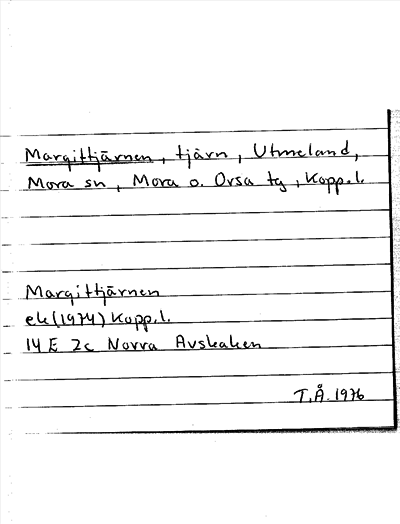 Margittjärnen, tjärn, Utmeland,
Mora sn, Mora o. Orsa tg, Kopp.l.
Margittjärnen
ek (1974) Kopp.l.
14 E 2c Norra Avskaken
T.Å. 1976